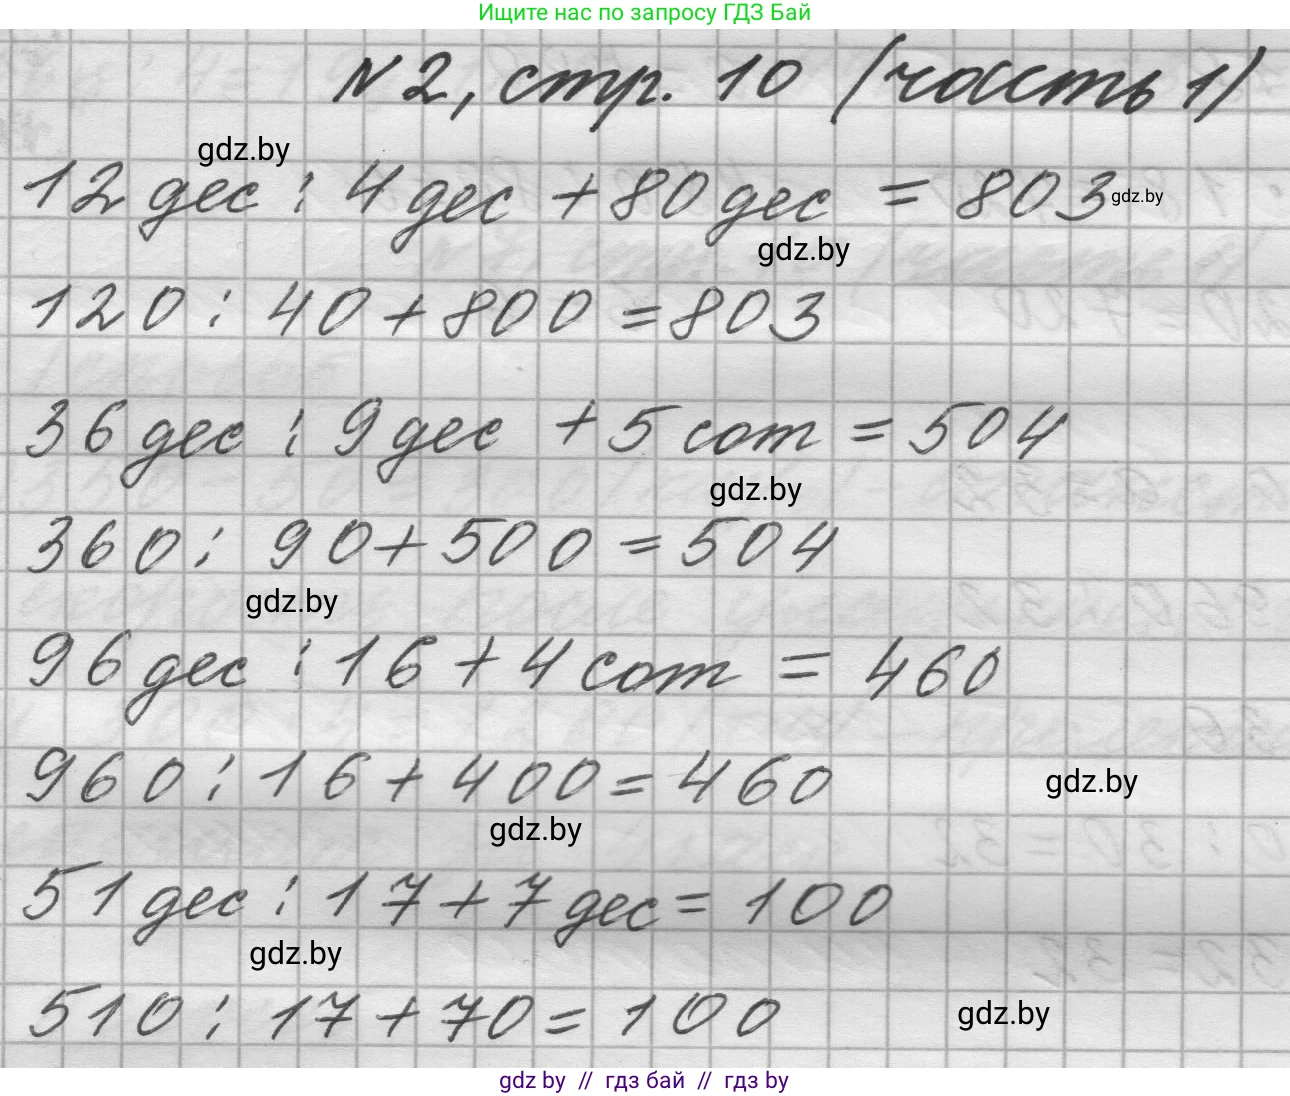 Ищите нас по запросу ГДЗ Бай
N2, стр. 10 (часть 1)
gdz.by
12 дес : 4 дес + 80 дес = 803 gdz.by
gdz.by
120 : 40 + 800 = 803
36 дес : 9 дес + 5 сот = 504
gdz.by
360 : 90 + 500 = 504
gdz.by
96 дес : 16 + 4 сот = 460
960 : 16 + 400 = 460 gdz.by
gdz.by
51 дес : 17 + 7 дес = 100
gdz.by
510 : 17 + 70 = 100 gdz.by
gdz by // гдз бай // гдз by